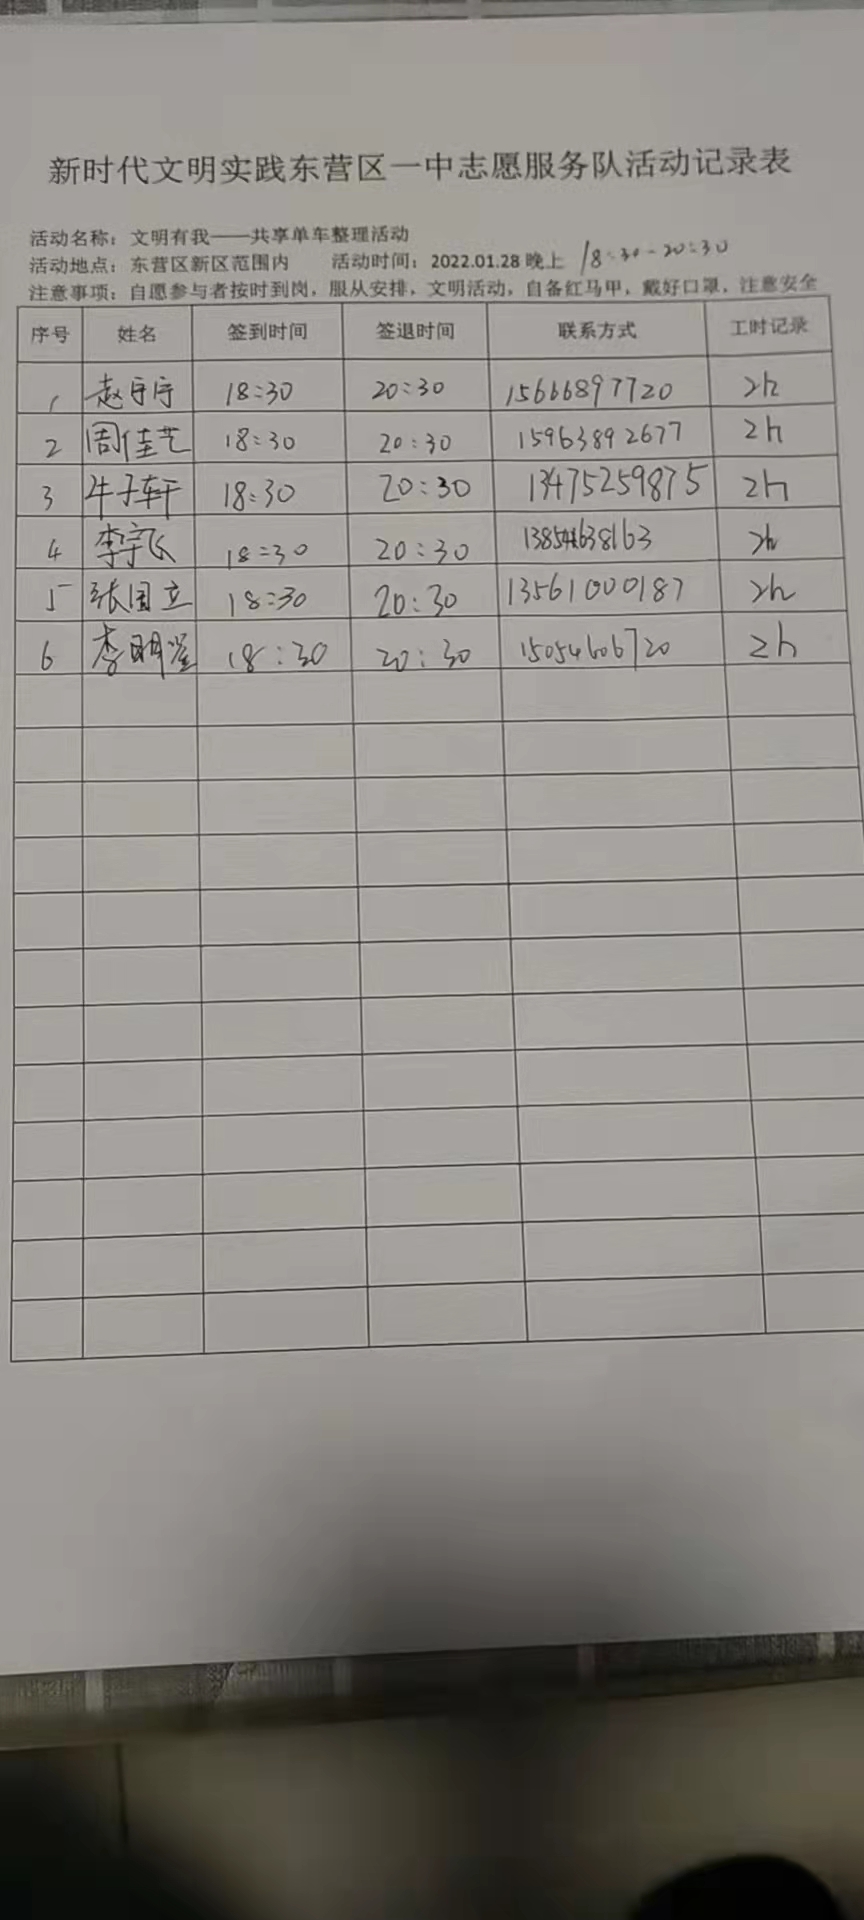 新时代文明实践东营区一中志愿服务队活动记录表
活动名称：文明有我——共享单车整理活动
活动地点：东营区新区范围内 活动时间：2022.01.28 晚上 18:30-20:30
注意事项：自愿参与者按时到岗，服从安排，文明活动，自备红马甲，戴好口罩，注意安全
序号 姓名 签到时间 签退时间 联系方式 工时记录
1 赵 18:30 20:30 15666897720 2h
2 周佳艺 18:30 20:30 15963892677 2h
3 牛子轩 18:30 20:30 13475259875 2h
4 李宇飞 18:30 20:30 2h
5 张国立 18:30 20:30 13561000187 2h
6 李明 18:30 20:30 15054606720 2h